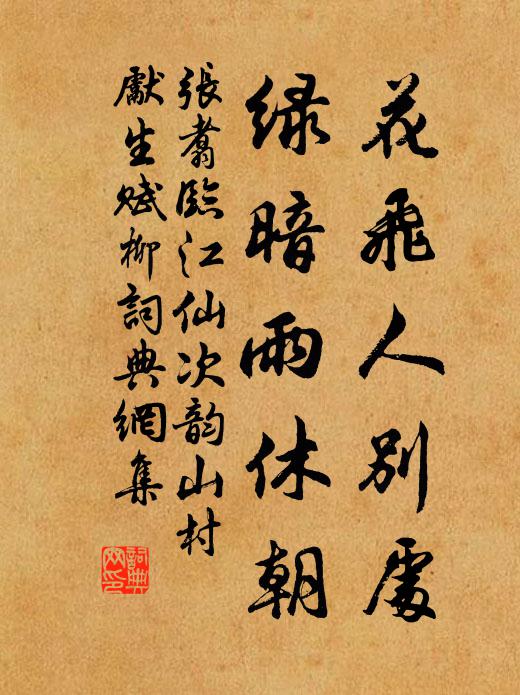 花飛人別處
緑暗雨休朝
張翥臨江仙次韵山村
獻生賦柳詞典網集
詞典網印